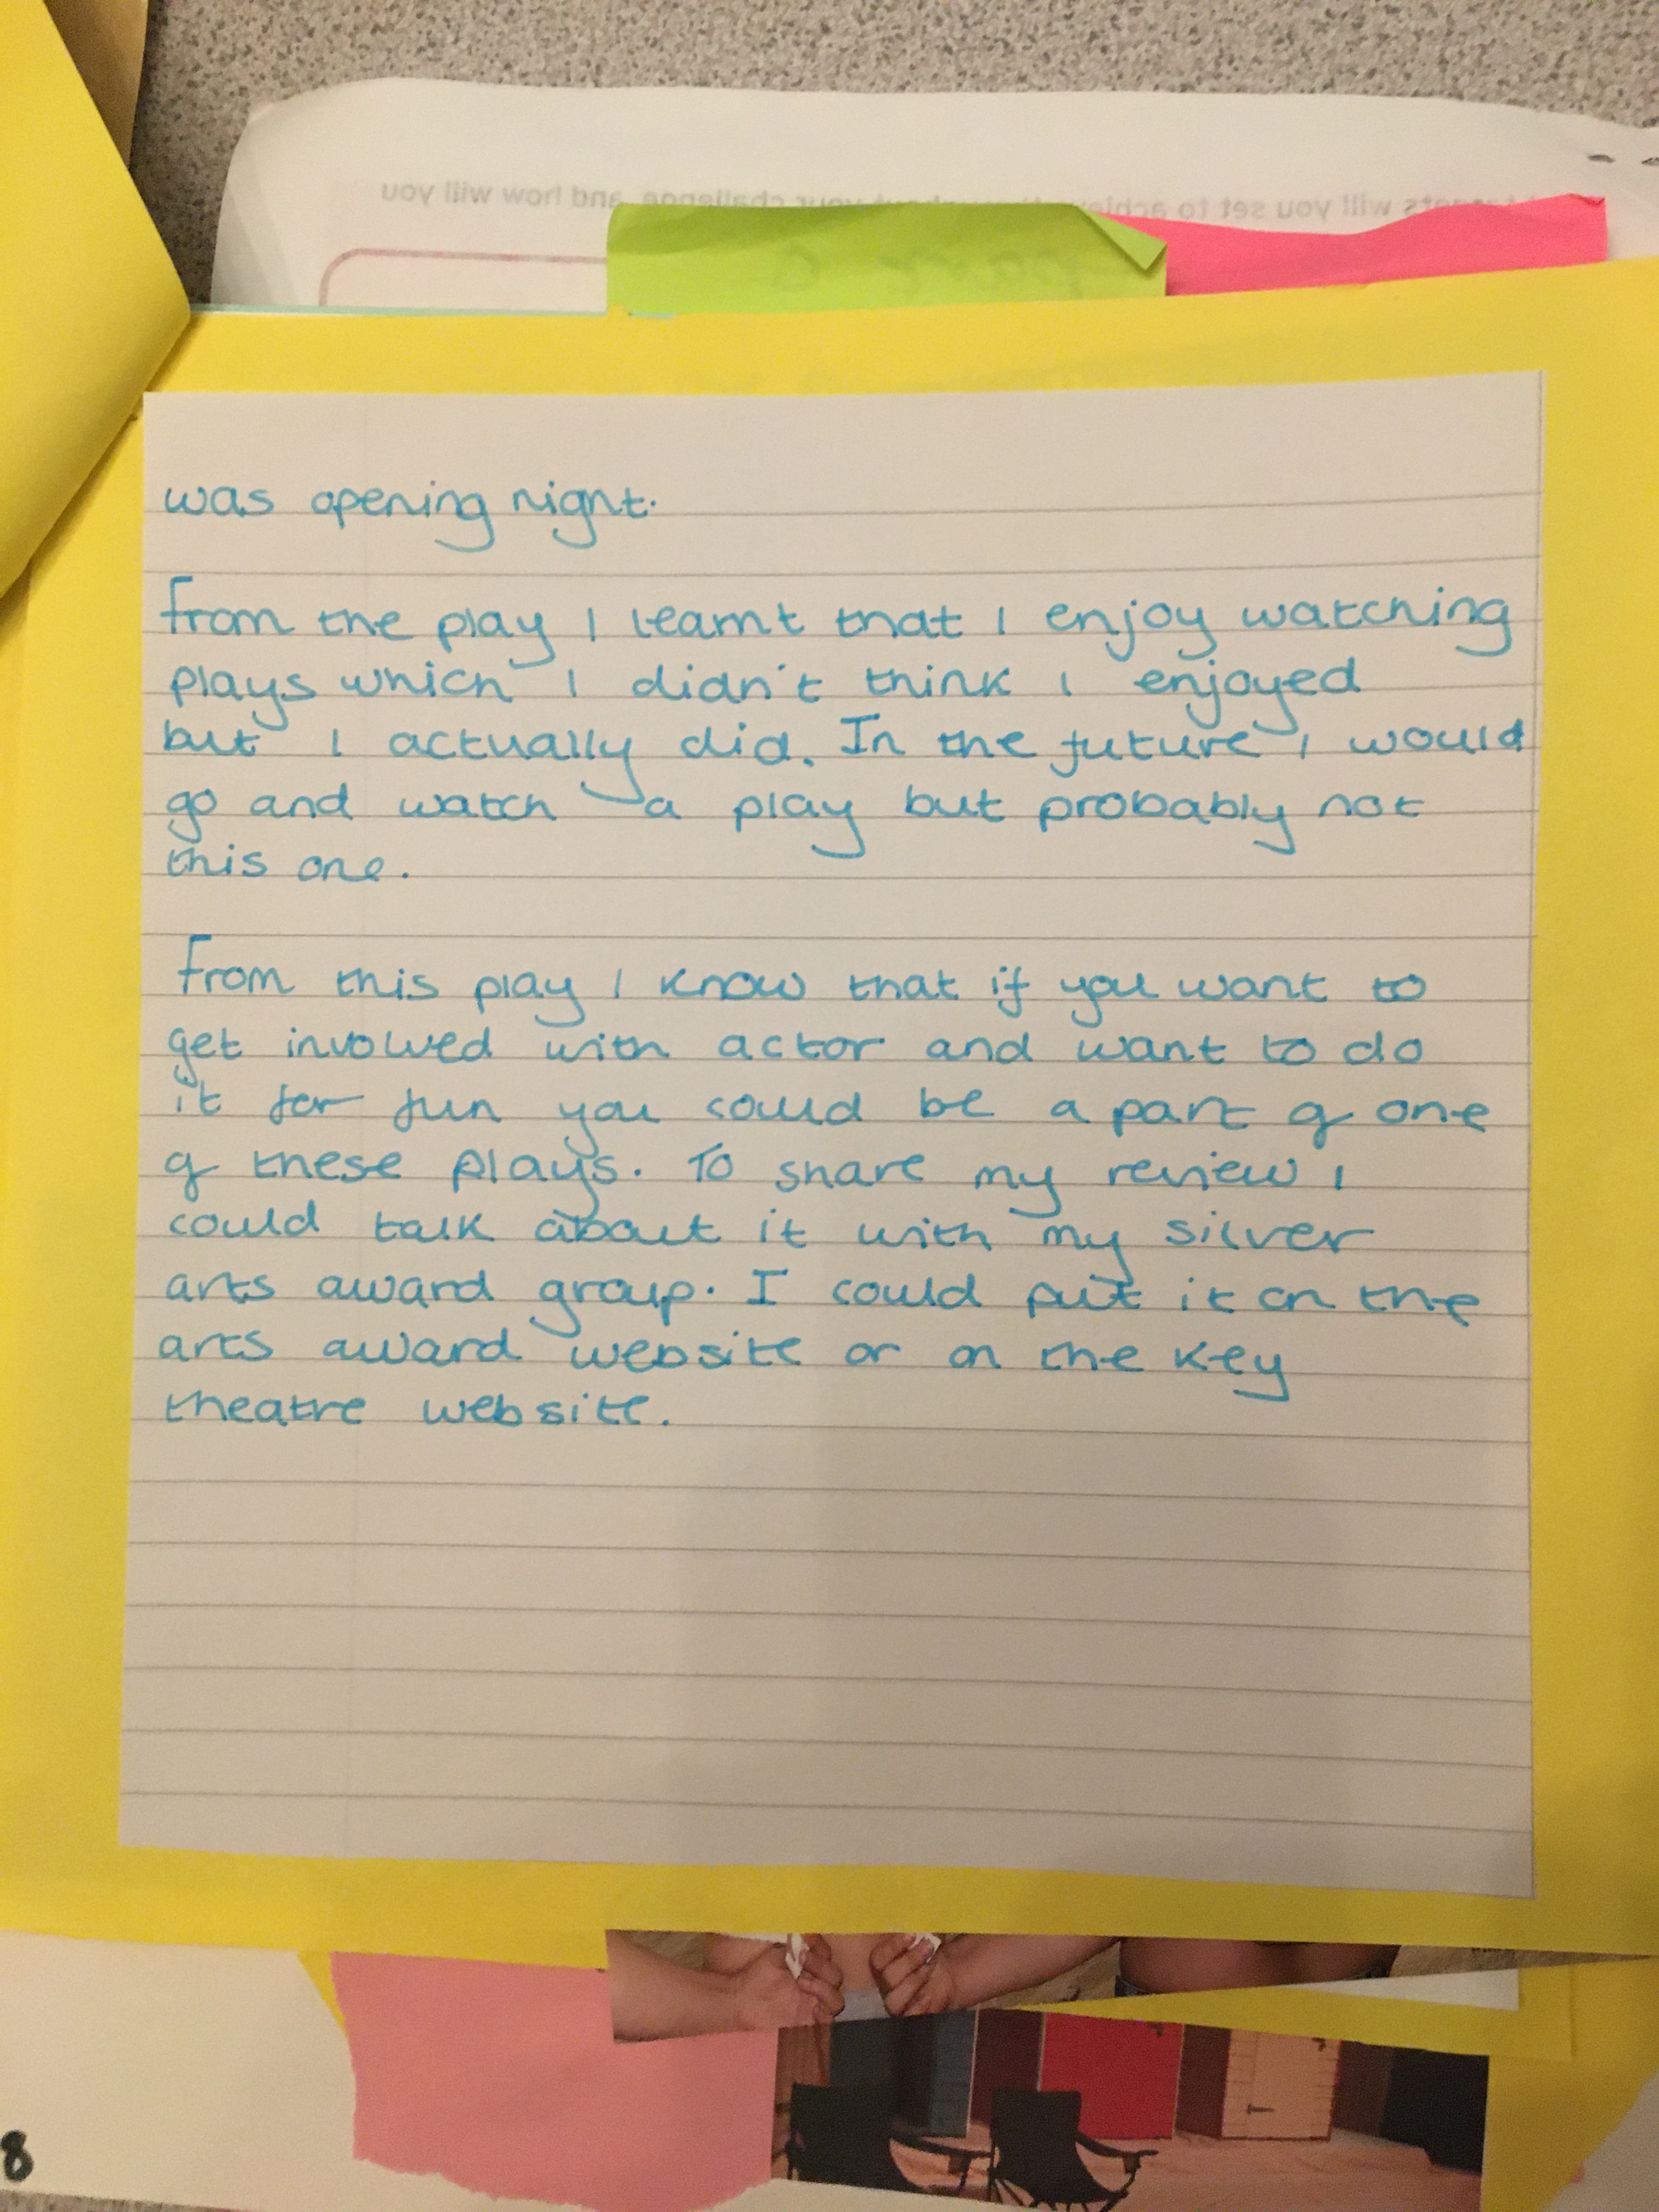 targets will you set to achieve throughout your challenge, and how will you
part c
was opening night.
From the play I learnt that I enjoy watching
plays which I didn't think I enjoyed
but I actually did. In the future I would
go and watch a play but probably not
this one.
From this play I know that if you want to
get involved with actor and want to do
it for fun you could be a part of one
of these plays. To share my review I
could talk about it with my silver
arts award group. I could put it on the
arts award website or on the key
theatre website.
8